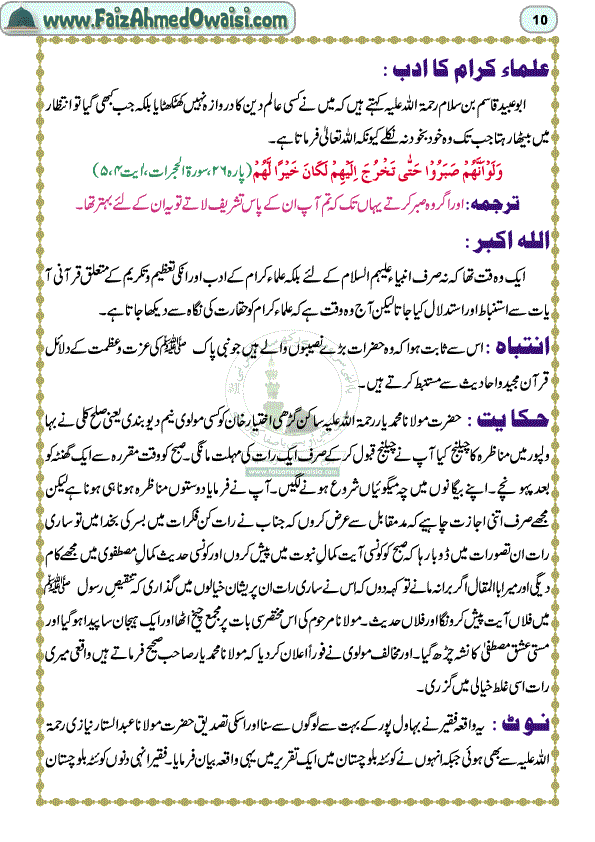 www.FaizAhmedOwaisi.com
10
علماء کرام کا ادب :
ابو عبید قاسم بن سلام رحمۃ اللہ علیہ کہتے ہیں کہ میں نے کسی عالم دین کا دروازہ نہیں کھٹکھٹایا بلکہ جب کبھی گیا تو انتظار
میں بیٹھا رہتا جب تک وہ خود بخود نہ نکلے کیونکہ اللہ تعالیٰ فرماتا ہے۔
وَلَوْ اَنَّهُمْ صَبَرُوْا حَتّٰى تَخْرُجَ اِلَيْهِمْ لَكَانَ خَيْرًا لَّهُمْ (پارہ ۲۶، سورۃ الحجرات، ایت ۵،۴)
ترجمہ: اور اگر وہ صبر کرتے یہاں تک کہ تم آپ ان کے پاس تشریف لاتے تو یہ ان کے لئے بہتر تھا۔
اللہ اکبر :
ایک وہ وقت تھا کہ نہ صرف انبیاء علیہم السلام کے لئے بلکہ علماء کرام کے ادب اور انکی تعظیم و تکریم کے متعلق قرآنی آ
یات سے استنباط اور استدلال کیا جاتا لیکن آج وہ وقت ہے کہ علماء کرام کو حقارت کی نگاہ سے دیکھا جاتا ہے۔
انتباہ : اس سے ثابت ہوا کہ وہ حضرات بڑے نصیبوں والے ہیں جو نبی پاک ﷺ کی عزت و عظمت کے دلائل
قرآن مجید و احادیث سے مستنبط کرتے ہیں۔
www.faizahmedowaisi.com
حکایت : حضرت مولانا محمد یار رحمۃ اللہ علیہ ساکن گڑھی اختیار خان کو کسی مولوی نیم دیوبندی یعنی صلح کلی نے بہا
ولپور میں مناظرہ کا چیلنج کیا آپ نے چیلنج قبول کر کے صرف ایک رات کی مہلت مانگی۔ صبح کو وقت مقررہ سے ایک گھنٹہ کو
بعد پہونچے۔ اپنے بیگانوں میں چہ میگوئیاں شروع ہونے لگیں۔ آپ نے فرمایا دوستوں مناظرہ ہونا ہی ہونا ہے لیکن
مجھے صرف اتنی اجازت چاہیے کہ مد مقابل سے عرض کروں کہ جناب نے رات کن فکرات میں بسر کی بخدا میں تو ساری
رات ان تصورات میں ڈوبا رہا کہ صبح کو کونسی آیت کمال نبوت میں پیش کروں اور کونسی حدیث کمالِ مصطفوی میں مجھے کام
دیگی اور میرا بالمقال اگر برا نہ مانے تو کہہ دوں کہ اس نے ساری رات ان پریشان خیالوں میں گذاری کہ تنقیصِ رسول ﷺ
میں فلاں آیت پیش کرونگا اور فلاں حدیث۔ مولانا مرحوم کی اس مختصر سی بات پر مجمع چیخ اٹھا اور ایک ہیجان سا پیدا ہو گیا اور
مستی عشقِ مصطفیٰ کا نشہ چڑھ گیا۔ اور مخالف مولوی نے فوراً اعلان کر دیا کہ مولانا محمد یار صاحب صحیح فرماتے ہیں واقعی میری
رات اسی غلط خیالی میں گزری۔
نوٹ : یہ واقعہ فقیر نے بہاول پور کے بہت سے لوگوں سے سنا اور اسکی تصدیق حضرت مولانا عبد الستار نیازی رحمۃ
اللہ علیہ سے بھی ہوئی جبکہ انہوں نے کوئٹہ بلوچستان میں ایک تقریر میں یہی واقعہ بیان فرمایا۔ فقیر انہی دنوں کوئٹہ بلوچستان